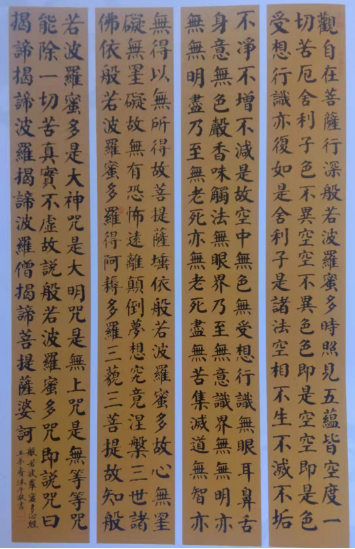 觀自在菩薩行深般若波羅蜜多時照見五蘊皆空度一
切苦厄舍利子色不異空空不異色色即是空空即是色
受想行識亦復如是舍利子是諸法空相不生不滅不垢
不淨不增不減是故空中無色無受想行識無眼耳鼻舌
身意無色聲香味觸法無眼界乃至無意識界無無明亦
無無明盡乃至無老死亦無老死盡無苦集滅道無智亦
無得以無所得故菩提薩埵依般若波羅蜜多故心無罣
礙無罣礙故無有恐怖遠離顛倒夢想究竟涅槃三世諸
佛依般若波羅蜜多羅得阿耨多羅三藐三菩提故知般
若波羅蜜多是大神咒是大明咒是無上咒是無等等咒
能除一切苦真實不虛故說般若波羅蜜多咒即說咒曰
揭諦揭諦波羅揭諦波羅僧揭諦菩提薩婆訶
般若波羅蜜多心經